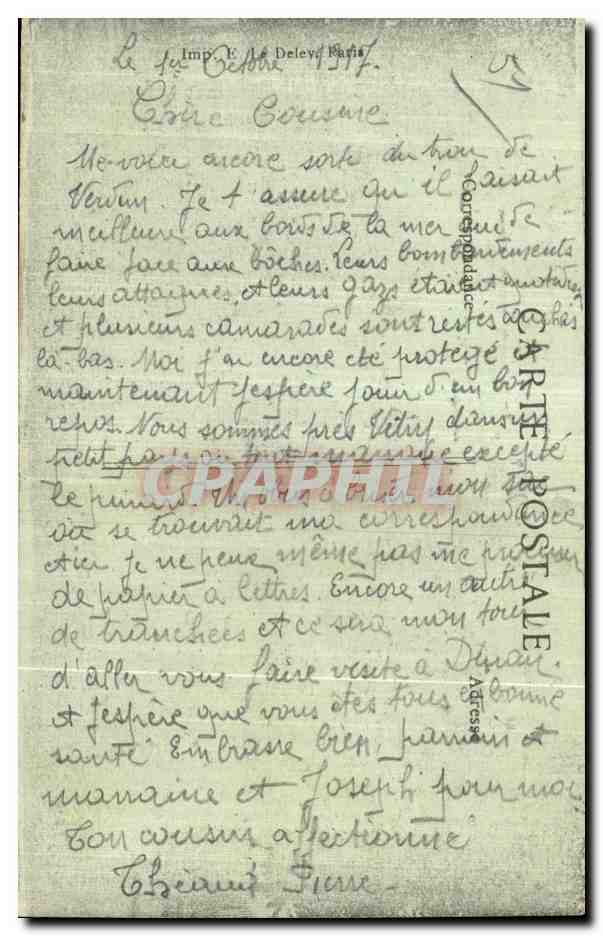 Imp. E. Le Deley, Paris
Le 1er Octobre 1917.
Chère Cousine
Me voici encore sorti du trou de
Verdun. Je t'assure qu'il faisait
meilleure aux bords de la mer que de
faire face aux bôches. Leurs bombardements
leurs attaques, et leurs gazs étaient
et plusieurs camarades sont restés
là-bas. Moi j'ai encore été protégé et
maintenant j'espère jouir d'un bon
repos. Nous sommes près Vitry dans un
petit pays où tout manque excepté
le pinard. Un obus a brûlé mon sac
où se trouvait ma correspondance
et ici je ne peux même pas me procurer
de papier à lettres. Encore un autre
de tranchées et ce sera mon tour
d'aller vous faire visite à Dinan.
et j'espère que vous êtes tous en bonne
santé Embrasse bien, parrain et
marraine et Joseph pour moi
Ton cousin affectionné
Pierre
CARTE POSTALE
Correspondance
Adresse
CPAPHIL